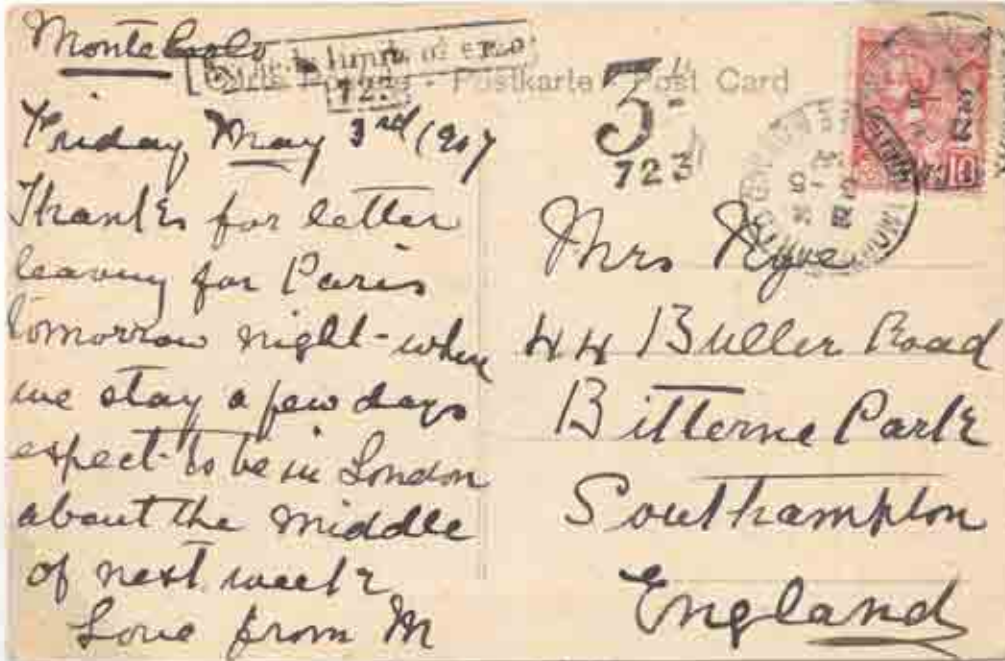 Monte Carlo
limit of
Carte Postale - Postkarte - Post Card
723
3"
723
Friday May 3rd 1907
Thanks for letter
leaving for Paris
tomorrow night - when
we stay a few days
expect to be in London
about the middle
of next week
Love from M
Mrs Nyve
44 Buller Road
Bitterne Park
Southampton
England